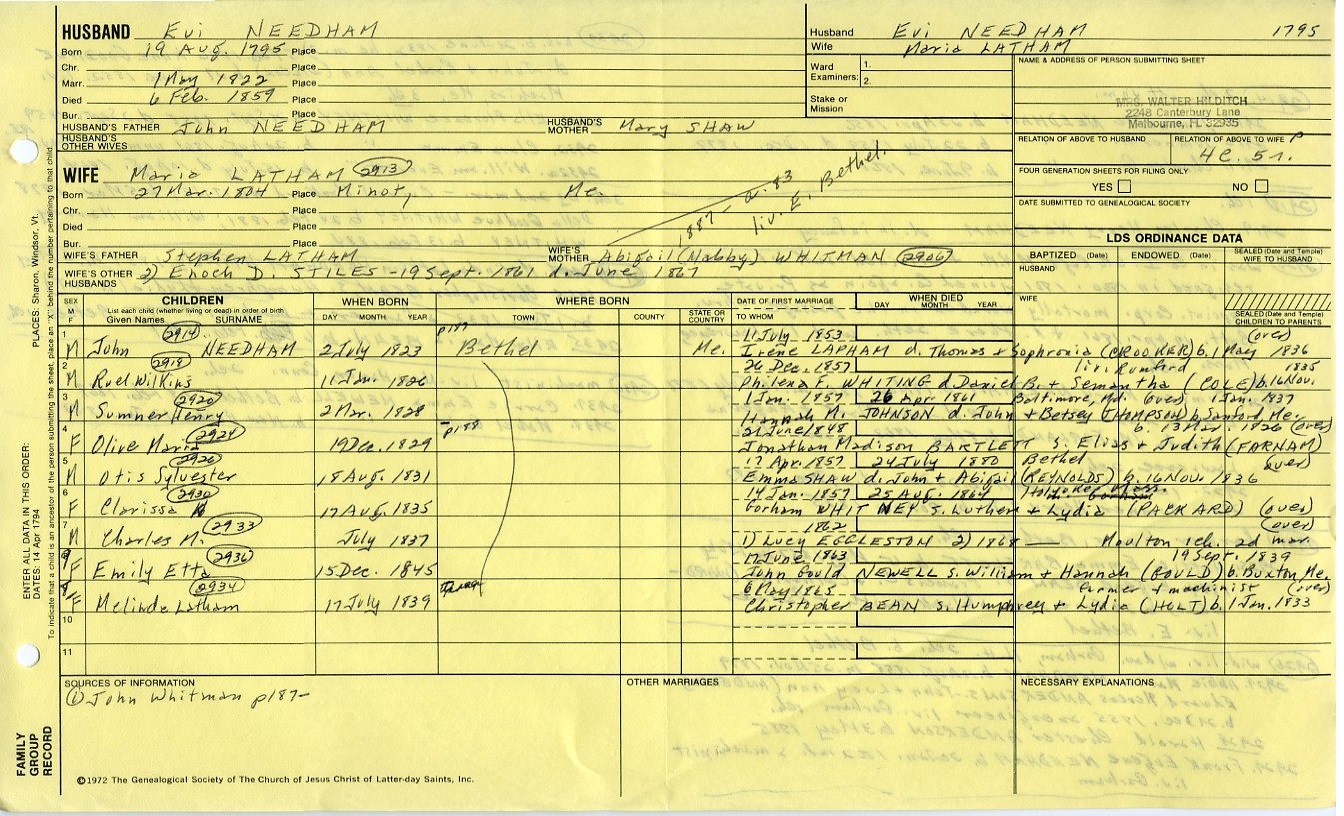 HUSBAND Evi NEEDHAM
Born 19 Aug. 1795 Place
Chr. Place
Marr. 1 May 1822 Place
Died 6 Feb. 1859 Place
Bur. Place
HUSBAND'S FATHER John NEEDHAM HUSBAND'S MOTHER Mary SHAW
HUSBAND'S OTHER WIVES
Husband Evi NEEDHAM 1795
Wife Maria LATHAM
Ward Examiners: 1.
2.
Stake or Mission
NAME & ADDRESS OF PERSON SUBMITTING SHEET
MRS. WALTER HILDITCH
2248 Canterbury Lane
Melbourne, FL 32935
RELATION OF ABOVE TO HUSBAND RELATION OF ABOVE TO WIFE
4c. 5r.
FOUR GENERATION SHEETS FOR FILING ONLY
YES NO
DATE SUBMITTED TO GENEALOGICAL SOCIETY
WIFE Maria LATHAM 2913
Born 27 Mar. 1804 Place Minot, Me.
Chr. Place
Died Place
Bur. Place
1887 - a. 83
liv. E. Bethel.
WIFE'S FATHER Stephen LATHAM WIFE'S MOTHER Abigail (Nabby) WHITMAN 2906
WIFE'S OTHER HUSBANDS 2) Enoch D. STILES - 19 Sept. 1861 d. June 1867
LDS ORDINANCE DATA
BAPTIZED (Date) ENDOWED (Date) SEALED (Date and Temple) WIFE TO HUSBAND
HUSBAND
WIFE
SEALED (Date and Temple) CHILDREN TO PARENTS
SEX M F CHILDREN WHEN BORN WHERE BORN DATE OF FIRST MARRIAGE WHEN DIED
List each child (whether living or dead) in order of birth
Given Names SURNAME DAY MONTH YEAR TOWN COUNTY STATE OR COUNTRY TO WHOM DAY MONTH YEAR
2914 p187 11 July 1853 (over)
1 M John NEEDHAM 2 July 1823 Bethel Me. Irene LAPHAM d. Thomas + Sophronia (CROOKER) b. 1 May 1836
2918 26 Dec. 1857 liv. Rumford 1835
2 M Ruel Wilkins 11 Jan. 1826 Philena F. WHITING d. Daniel B. + Semantha (COLE) b. 16 Nov.
2920 1 Jan. 1857 26 Apr 1861 Baltimore, Md. (over) 1 Jan. 1837
3 M Sumner Henry 2 Mar. 1828 Hannah M. JOHNSON d. John + Betsey (THOMPSON) b. Sanford Me.
2924 p188 21 June 1848 b. 13 Mar. 1826 (over)
4 F Olive Maria 19 Dec. 1829 Jonathan Madison BARTLETT s. Elias + Judith (FARNAM)
2926 17 Apr. 1857 24 July 1880 Bethel (over)
5 M Otis Sylvester 18 Aug. 1831 Emma SHAW d. John + Abigail (REYNOLDS) b. 16 Nov. 1836
2930 14 Jan. 1857 25 Aug. 1864 Holyoke Mass.
6 F Clarissa 17 Aug. 1835 Gorham WHITNEY s. Luther + Lydia (PACKARD) (over)
2933 1862 (over)
7 M Charles M. July 1837 1) Lucy EGGLESTON 2) 1868 — Moulton 1ch. 2d mar.
2936 17 June 1863 19 Sept. 1839
9 F Emily Etta 15 Dec. 1845 John Gould NEWELL s. William + Hannah (GOULD) b. Buxton Me.
2934 6 May 1865 farmer + machinist (over)
8 F Melinda Latham 17 July 1839 Christopher BEAN s. Humphrey + Lydia (HOLT) b. 1 Jan. 1833
10
11
SOURCES OF INFORMATION
① John Whitman p187-
OTHER MARRIAGES
NECESSARY EXPLANATIONS
©1972 The Genealogical Society of The Church of Jesus Christ of Latter-day Saints, Inc.
FAMILY GROUP RECORD
ENTER ALL DATA IN THIS ORDER:
DATES: 14 Apr 1794
PLACES: Sharon, Windsor, Vt.
To indicate that a child is an ancestor of the person submitting the sheet, place an "X" behind the number pertaining to that child.